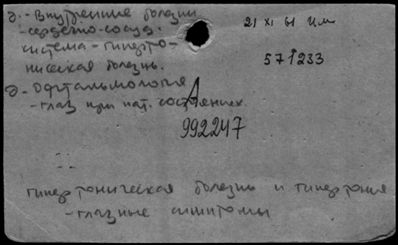 д. - Внутренние болезни
- сердечно-сосуд.
система - гиперто-
ническая болезнь.
д. - Офтальмология
- глаз при пат. состояниях
21 XI 61
571233
А
992247
гипертоническая болезнь и гипертония
- глазные симптомы